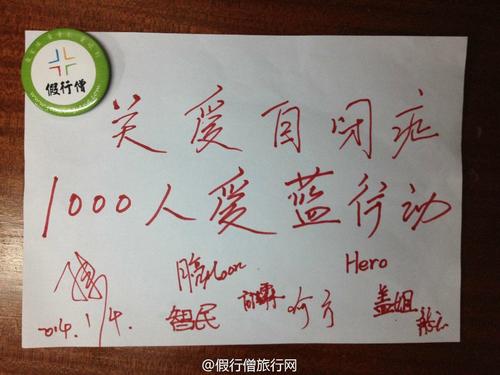 假行僧
关爱自闭症
1000人爱蓝行动
Hero
智民
盖姐
2014.1/4.
@假行僧旅行网